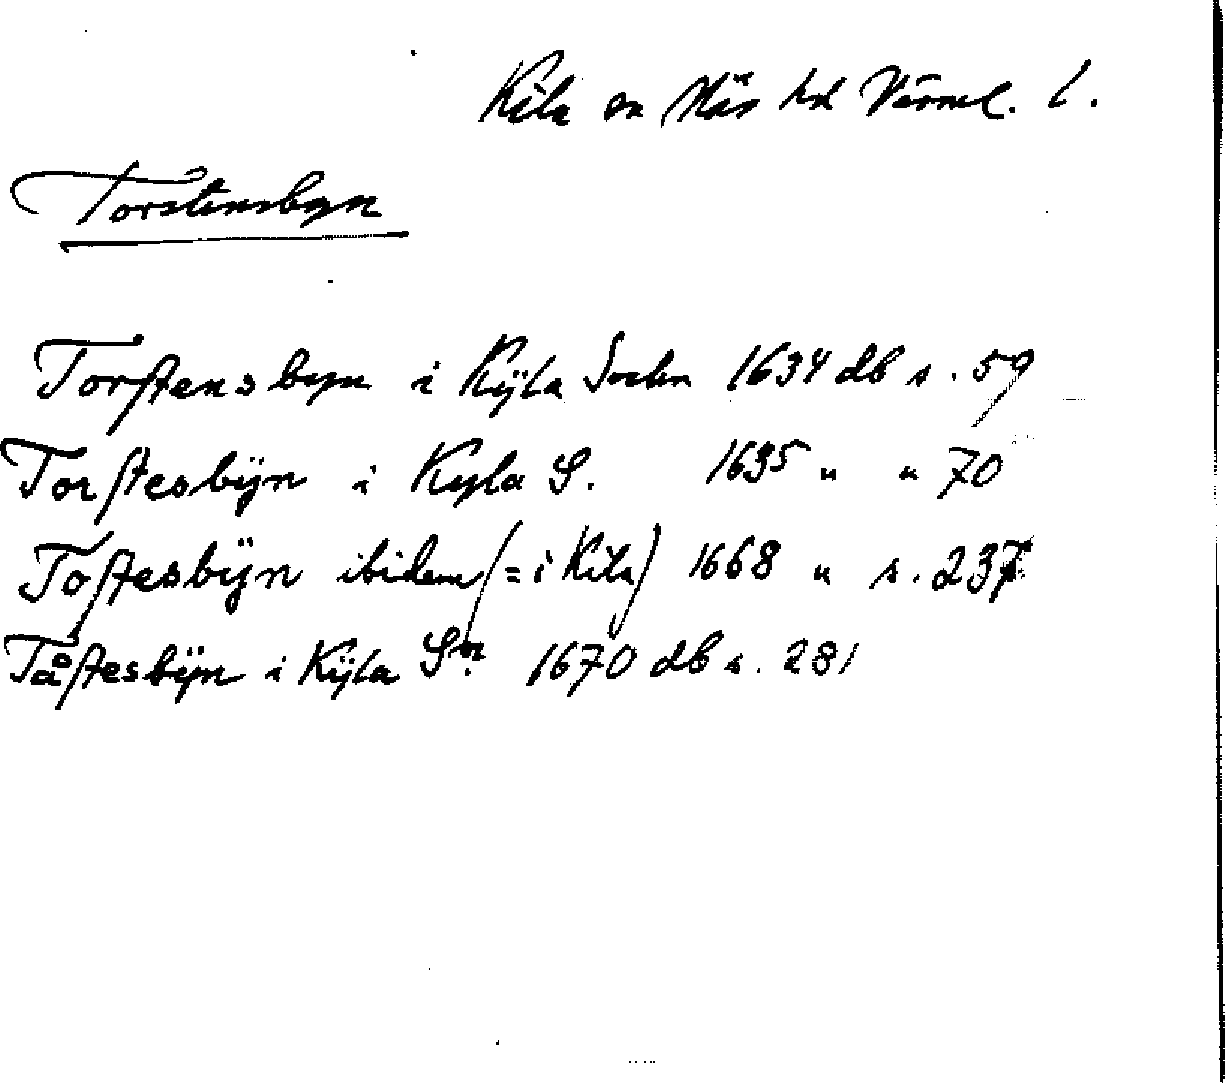 Kila sn Näs hd Värml. l.
Torstensbyn
Torstensbyn i Kÿla Sochn 1634 db s. 59
Torstesbÿn i Kyla S. 1635 " " 70
Tostesbÿn ibidem (= i Kila) 1668 " s. 237
Tåstesbÿn i Kÿla Sn 1670 db s. 281